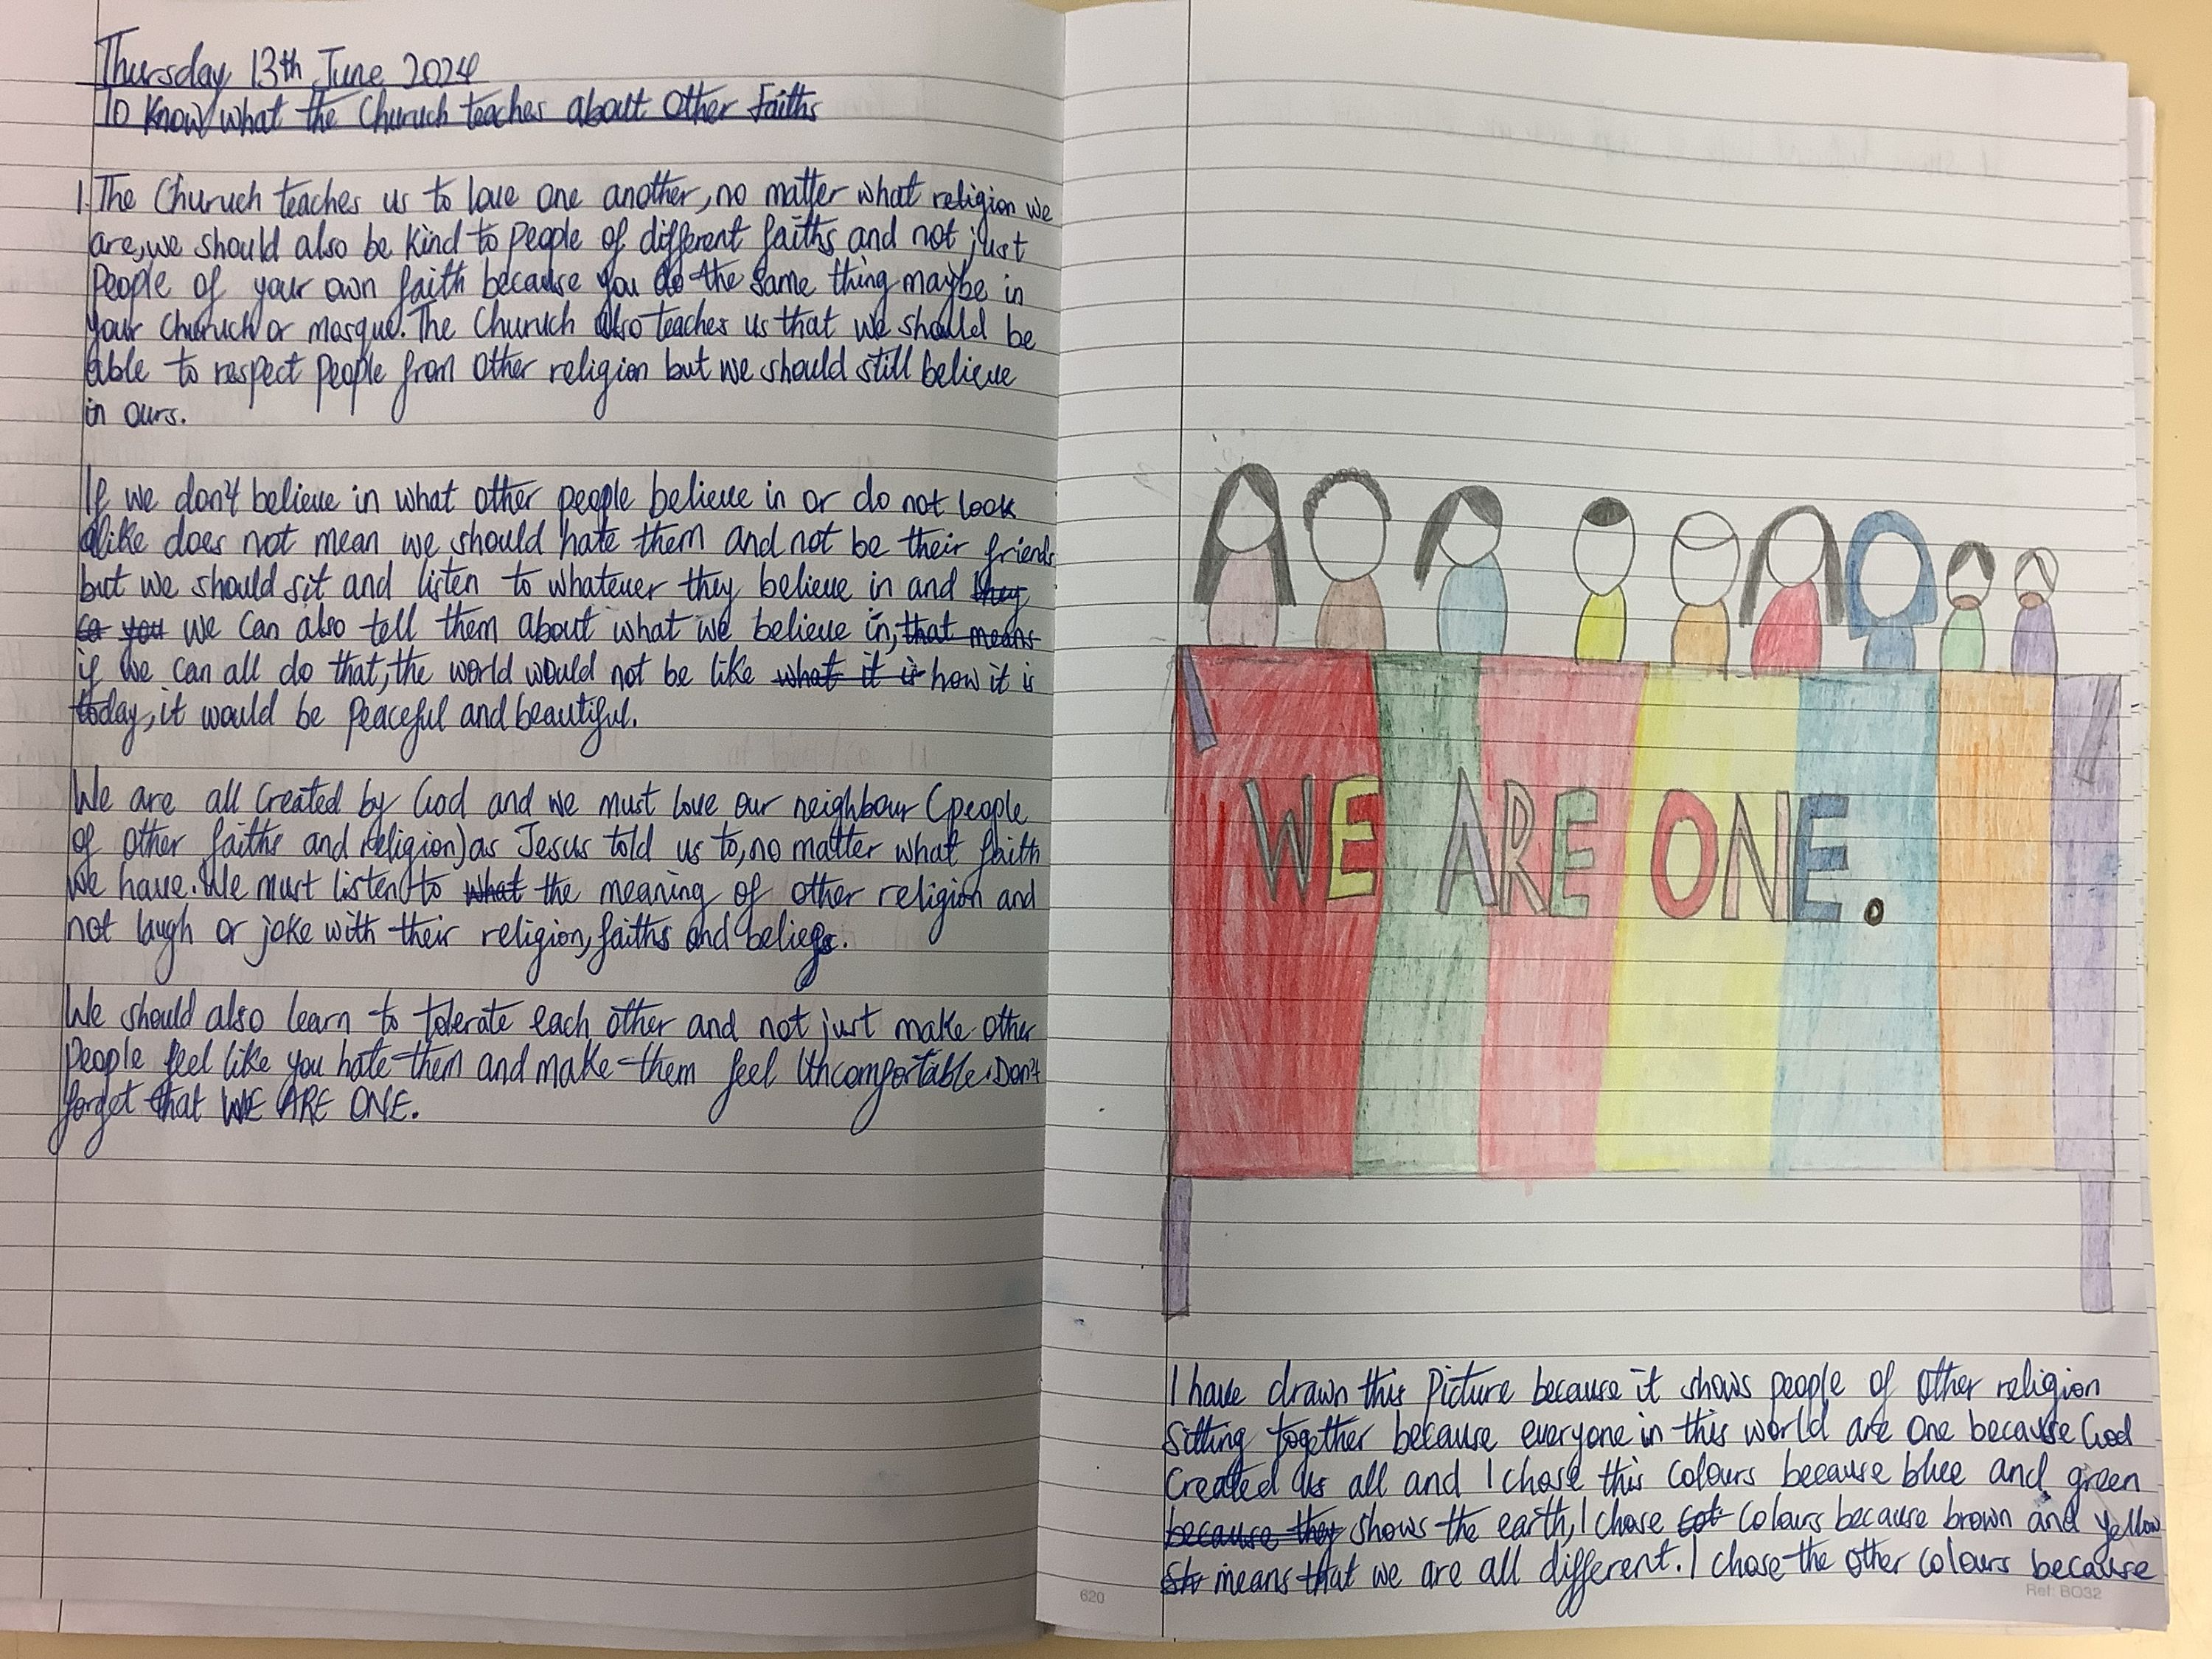 Thursday 13th June 2024
To Know what the Churuch teaches about Other Faiths
1. The Churuch teaches us to love one another, no matter what religion we
are, we should also be kind to people of different faiths and not just
people of your own faith because you do the same thing maybe in
your Churuch or mosque. The Churuch also teaches us that we should be
able to respect people from other religion but we should still believe
in ours.
If we don't believe in what other people believe in or do not look
alike does not mean we should hate them and not be their friends
but we should sit and listen to whatever they believe in and they
ca you we can also tell them about what we believe in, that means
if we can all do that, the world would not be like what it is how it is
today, it would be peaceful and beautiful.
We are all created by God and we must love our neighbour (people
of other faiths and religion) as Jesus told us to, no matter what faith
we have. We must listen to what the meaning of other religion and
not laugh or joke with their religion, faiths and beliefs.
We should also learn to tolerate each other and not just make other
people feel like you hate them and make them feel uncomfortable. Don't
forget that WE ARE ONE.
WE ARE ONE.
I have drawn this picture because it shows people of other religion
sitting together because everyone in this world are one because God
created us all and I chose this colours because blue and green
because they shows the earth, I chose col colours because brown and yellow
sh means that we are all different. I chose the other colours because
620
Ref: BO32